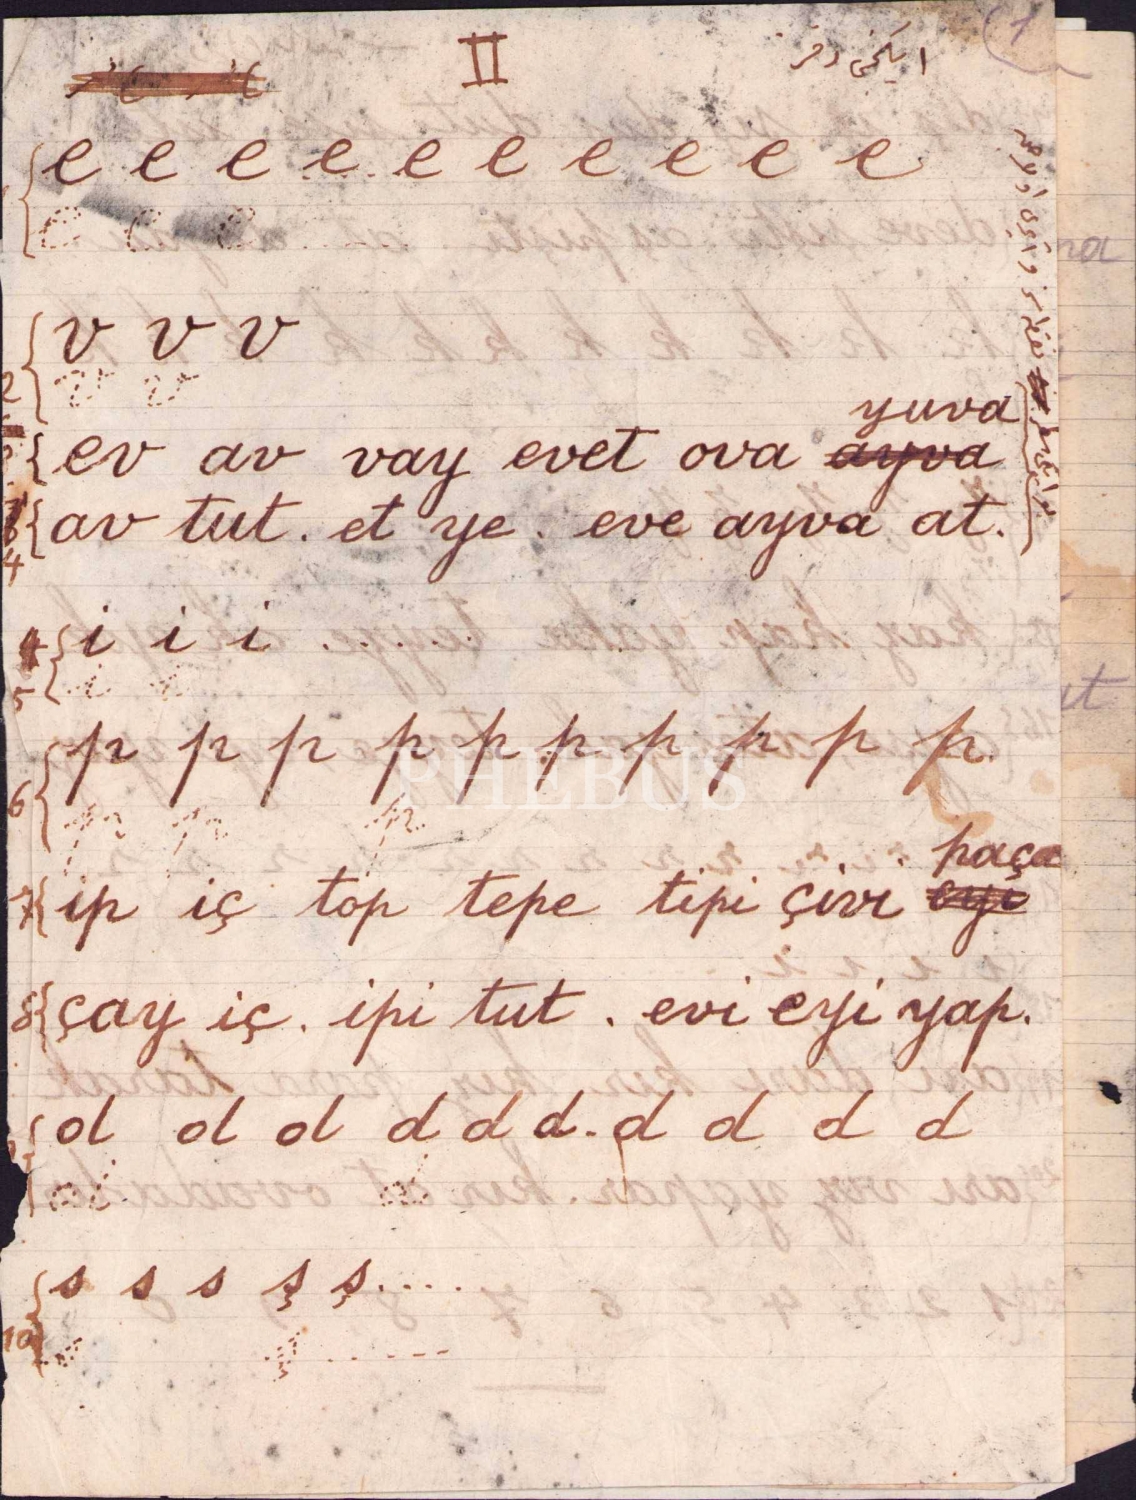 II
ايكنجى دفتر
1
e e e e e e e e e e
e e e
v v v
v v
2
yuva
ev av vay evet ova ayva
av tut. et ye. eve ayva at.
4
i i i . . . . . .
i i
5
p p p p p p p p p p.
p p p
6
paça
7 ip iç top tepe tipi çivi eyi
8 çay iç. ipi tut. evi eyi yap.
d d d d d d. d d d d
d d
s s s ş ş. . . .
10 s ş . . - - - -
PHEBUS